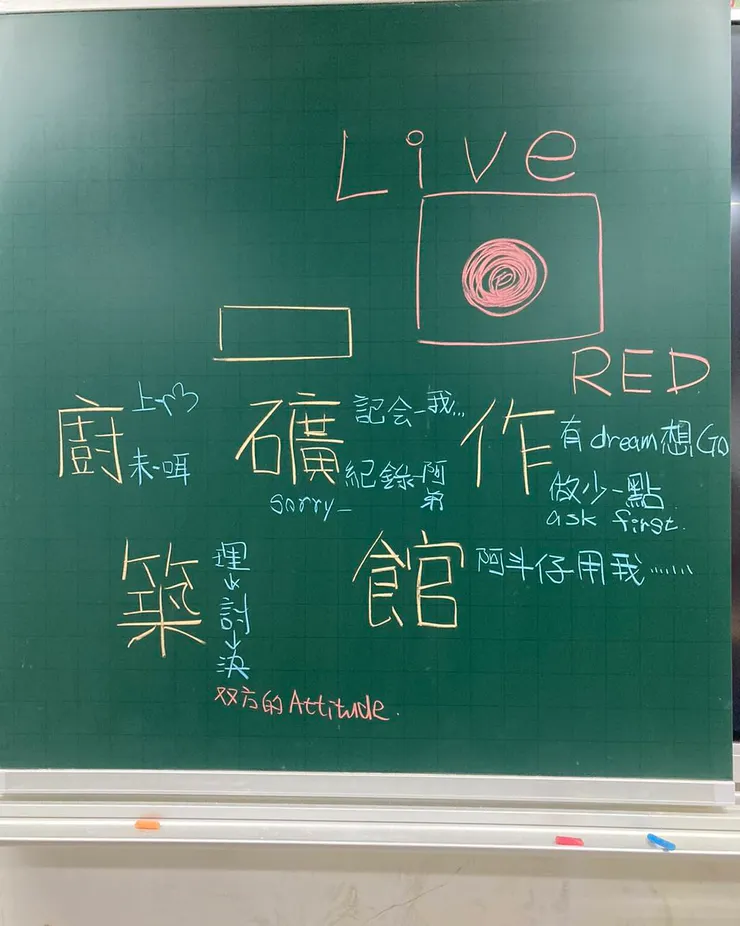 Live
RED
廚
上一心
未一咡
礦
記会一我...
紀錄一阿弟
sorry_
作
有dream想Go
做少一點
ask first.
築
理
↓
討
↓
決
双方的Attitude.
館
阿斗仔用我......